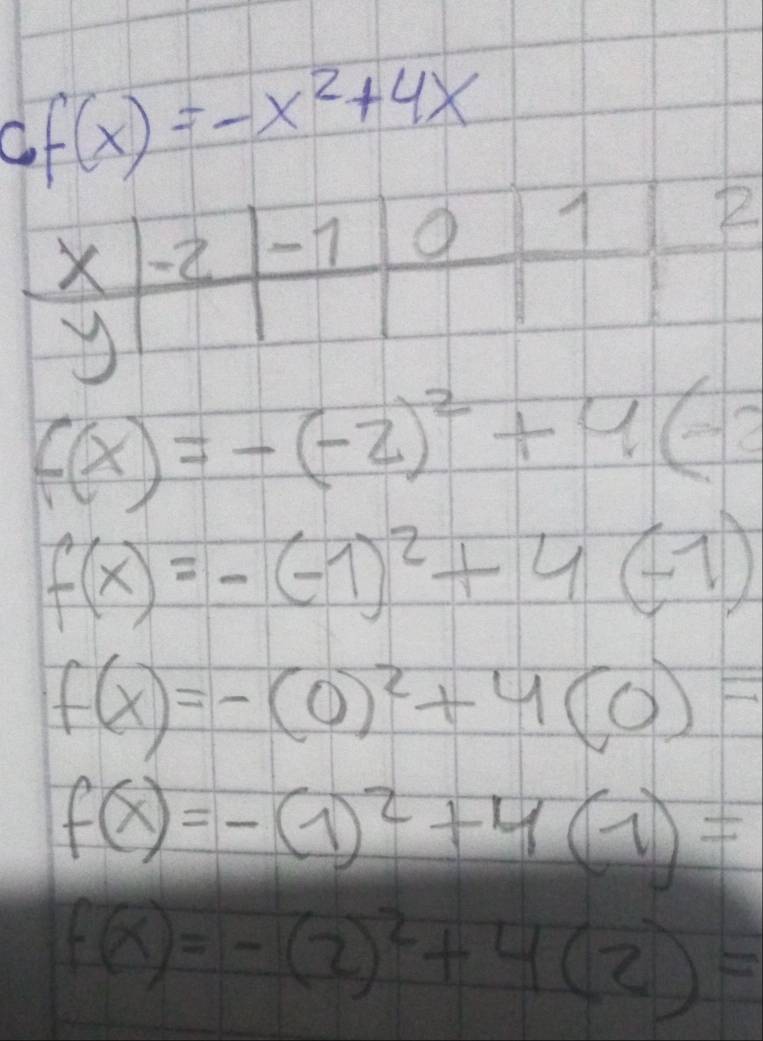 c f(x) = -x²+4x
x | -2 | -1 | 0 | 1 | 2
y
f(x) = -(-2)² + 4(-2
f(x) = -(-1)² + 4 (-1)
f(x) = -(0)² + 4(0) =
f(x) = -(1)² + 4(1) =
f(x) = -(2)² + 4(2) =